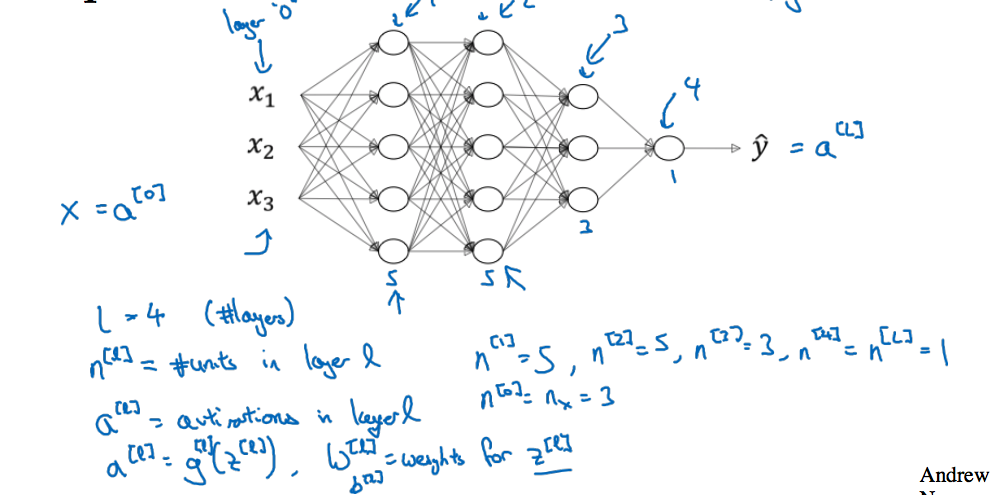 layer '0'
3
4
x₁
x₂
ŷ = a^[L]
1
x₃
X = a^[0]
3
5
5
L = 4 (#layers)
n^[l] = #units in layer l
n^[1] = 5, n^[2] = 5, n^[3] = 3, n^[4] = n^[L] = 1
n^[0] = n_x = 3
a^[l] = activations in layer l
a^[l] = g^[l](z^[l]), W^[l] = weights for z^[l]
b^[l]
Andrew